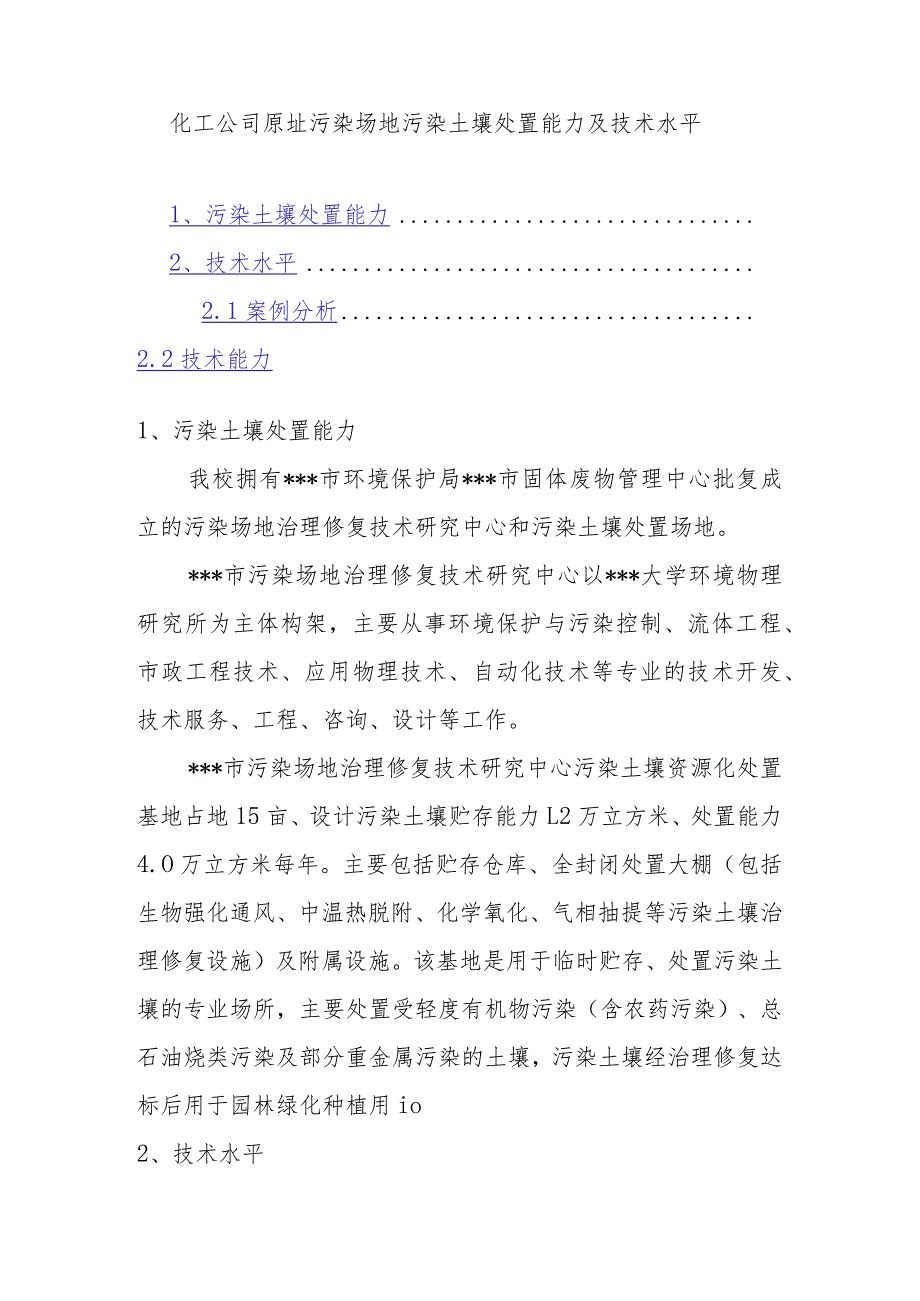 化工公司原址污染场地污染土壤处置能力及技术水平
1、污染土壤处置能力 ...............................
2、技术水平 .......................................
2.1案例分析....................................
2.2技术能力
1、污染土壤处置能力
我校拥有***市环境保护局***市固体废物管理中心批复成
立的污染场地治理修复技术研究中心和污染土壤处置场地。
***市污染场地治理修复技术研究中心以***大学环境物理
研究所为主体构架，主要从事环境保护与污染控制、流体工程、
市政工程技术、应用物理技术、自动化技术等专业的技术开发、
技术服务、工程、咨询、设计等工作。
***市污染场地治理修复技术研究中心污染土壤资源化处置
基地占地15亩、设计污染土壤贮存能力L2万立方米、处置能力
4.0万立方米每年。主要包括贮存仓库、全封闭处置大棚（包括
生物强化通风、中温热脱附、化学氧化、气相抽提等污染土壤治
理修复设施）及附属设施。该基地是用于临时贮存、处置污染土
壤的专业场所，主要处置受轻度有机物污染（含农药污染）、总
石油烧类污染及部分重金属污染的土壤，污染土壤经治理修复达
标后用于园林绿化种植用io
2、技术水平